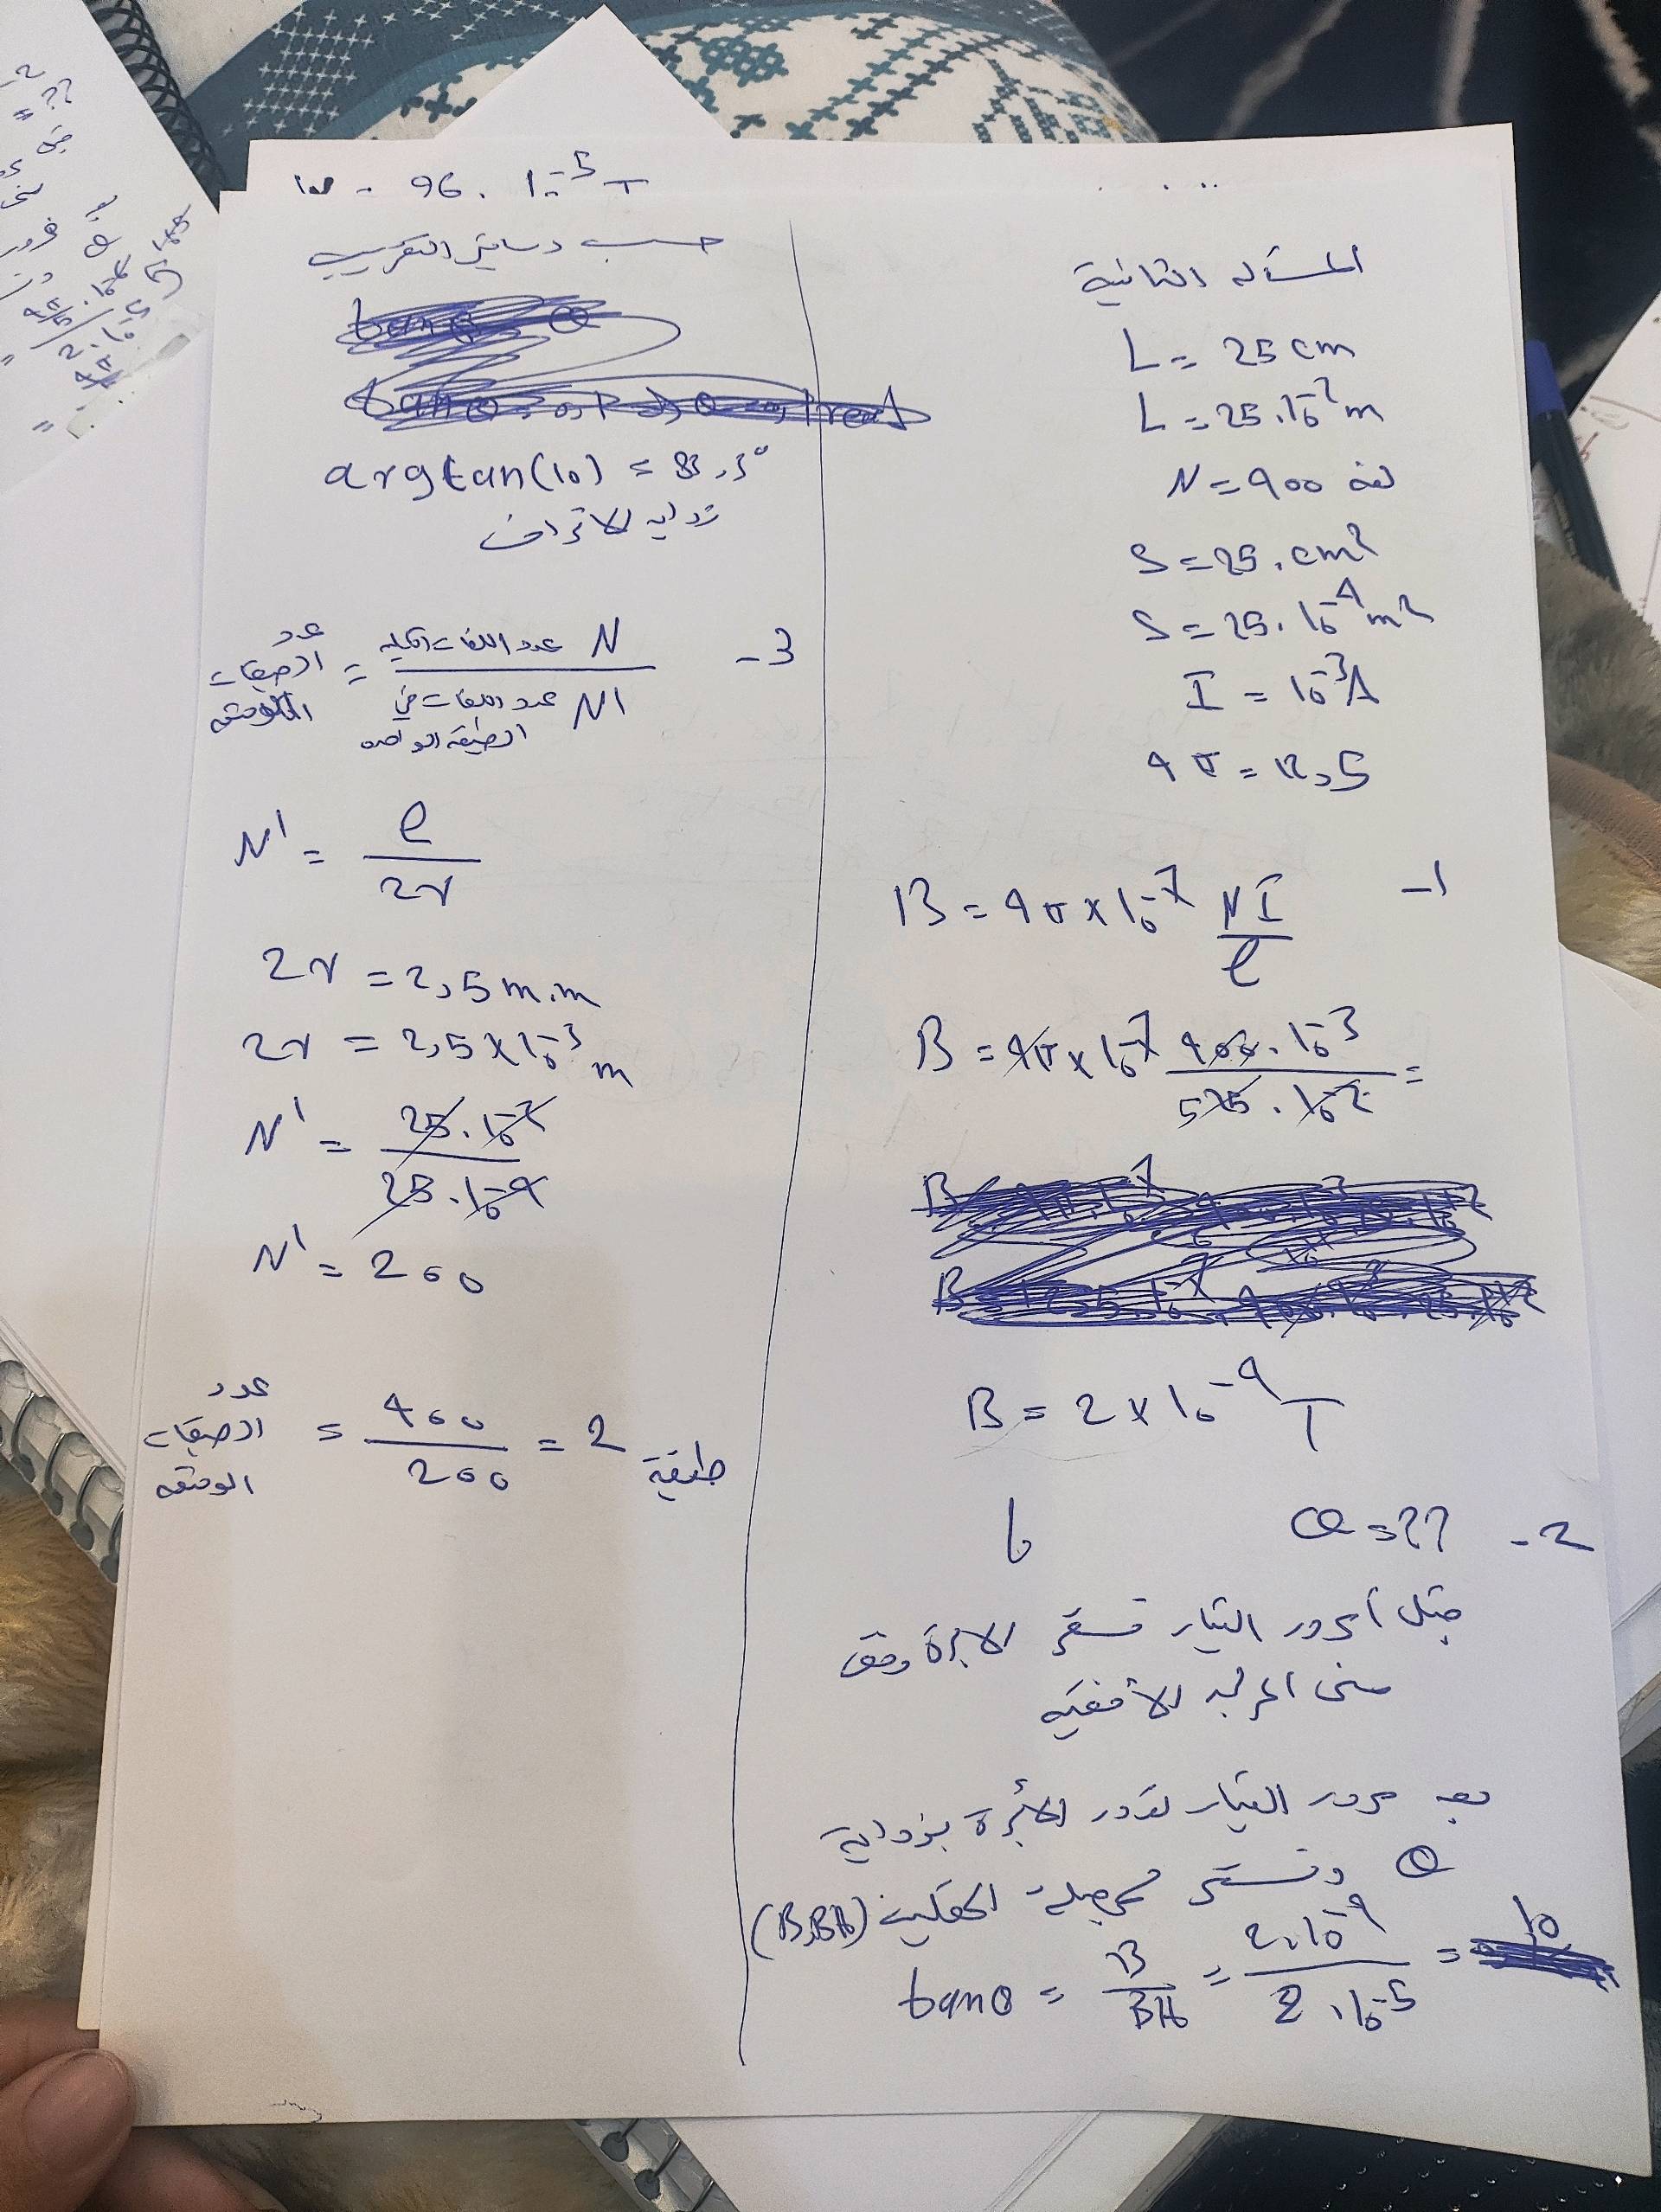 المسألة الثانية
L = 25 cm
L = 25 . 10^-2 m
N = 400 لفة
S = 25 . cm²
S = 25 . 10^-4 m²
I = 10^-3 A
4π = 12,5
1- B = 4π × 10^-7 NI / l
B = 4π × 10^-7 400 . 10^-3 / 25 . 10^-2 =
B = 2 × 10^-4 T
2- θ = ??
قبل امرور التيار تستقر الابرة وفق
منحى المركبة الأفقية
بعد مرور التيار تدور الأبرة بزواية
θ وتستقر محصلة الحقلين (B,BH)
tanθ = B / BH = 2 . 10^-4 / 2 . 10^-5 = 10
96 . 10^-5 T
حسب دساتير التقريب
argtan(10) = 83,3°
زواية الانحراف
3- عدد الطبقات = N عدد اللفات الكلية / N' عدد اللفات في الطبقة الواحدة
N' = l / 2r
2r = 2,5 m.m
2r = 2,5 × 10^-3 m
N' = 25 . 10^-2 / 25 . 10^-4
N' = 200
عدد الطبقات = 400 / 200 = 2 طبقة